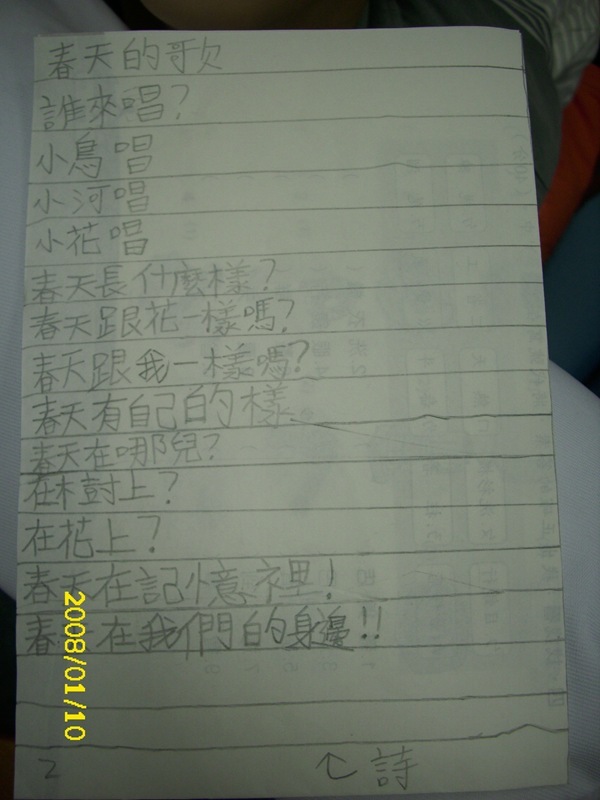 春天的歌
誰來唱?
小鳥唱
小河唱
小花唱
春天長什麼樣?
春天跟花一樣嗎?
春天跟我一樣嗎?
春天有自己的樣
春天在哪兒?
在樹上?
在花上?
春天在記憶裡!
春天在我們的身邊!!
2008/01/10
2
詩